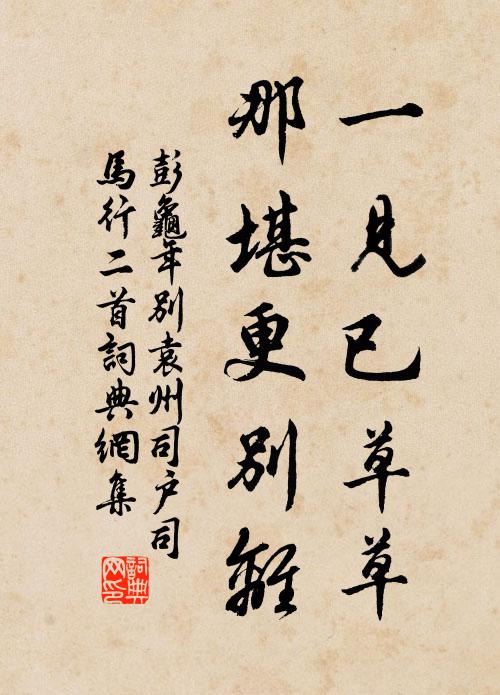 一見已草草
那堪更別離
彭龜年別袁州司戶司
馬行二首詞典網集
詞典网印